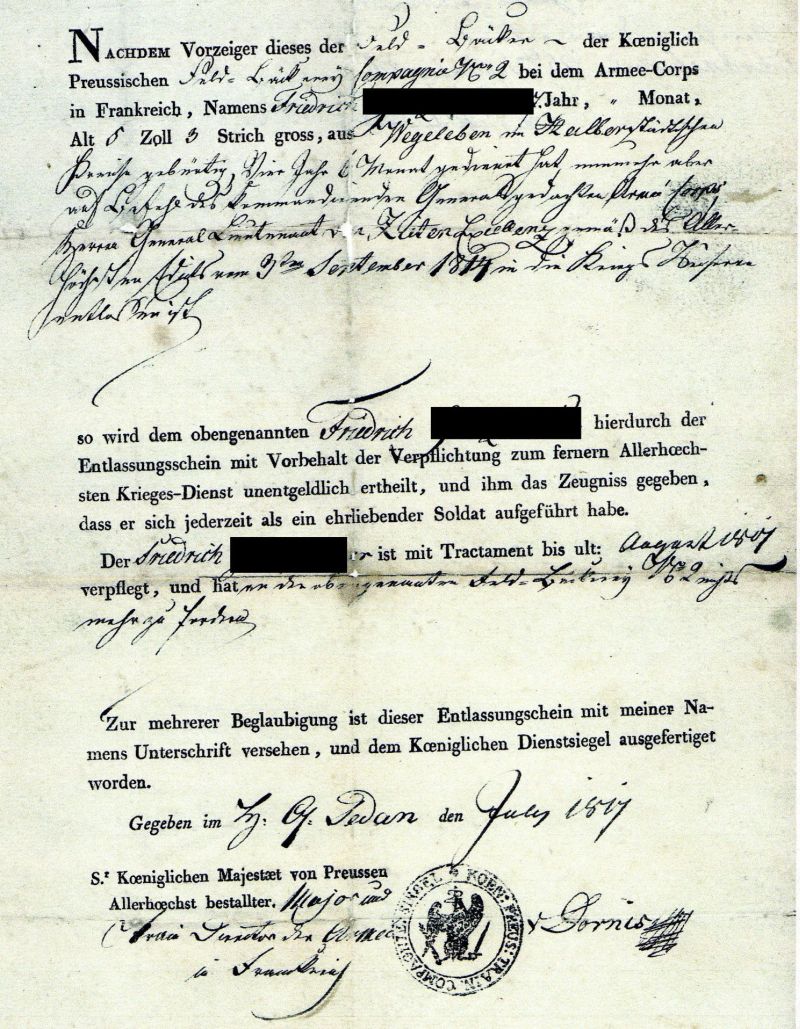 NACHDEM Vorzeiger dieses der Feld-Bäcker der Kœniglich
Preussischen Feld-Bäckerey Compagnie No 2 bei dem Armee-Corps
in Frankreich, Namens Friedrich Jahr, " Monat,
Alt 5 Zoll 3 Strich gross, aus Wegeleben im Halberstädtschen
Kreise gebürtig, Vier Jahr 6 Monat gedienet hat, nunmehr aber
auf Befehl des Commandirenden Generals gedachten Armee Corps
Herrn General Lieutenant von Zieten gemäß des Aller-
höchsten Edicts vom 3ten September 1814 in die Kriegs Reserve
entlassen ist
so wird dem obengenannten Friedrich hierdurch der
Entlassungsschein mit Vorbehalt der Verpflichtung zum fernern Allerhœch-
sten Krieges-Dienst unentgeldlich ertheilt, und ihm das Zeugniss gegeben,
dass er sich jederzeit als ein ehrliebender Soldat aufgeführt habe.
Der Friedrich ist mit Tractament bis ult: August 1817
verpflegt, und hat an die obengenannten Feld-Bäckerey No 2 nichts
mehr zu fordern
Zur mehrerer Beglaubigung ist dieser Entlassungschein mit meiner Na-
mens Unterschrift versehen, und dem Kœniglichen Dienstsiegel ausgefertiget
worden.
Gegeben im H. Q. Sedan den July 1817
S.r Kœniglichen Majestæt von Preussen
Allerhœchst bestallter. Major und
Train Director der Armee
in Frankreich
v Dornis
KOEN: PREUS: TRAIN. COMPAGNIE. SIEGEL